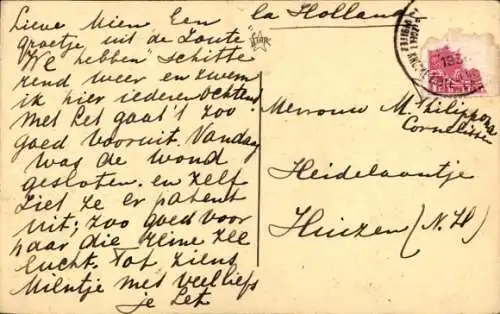 Lieve Mien Een
groetje uit de Zoute
We hebben schitte
rend weer en zwem
ik hier iederen ochtend
Met Let gaat's zoo
goed vooruit. Vandaag
was de wond
gesloten. en zelf
ziet ze er patent
uit; zoo goed voor
haar die reine zee
lucht. Tot ziens
Mientje met veel liefs
je Let
la Holland
Star
Mevrouw M. Philippona
Cornelissen
Heidelaantje
Huizen (N. H)